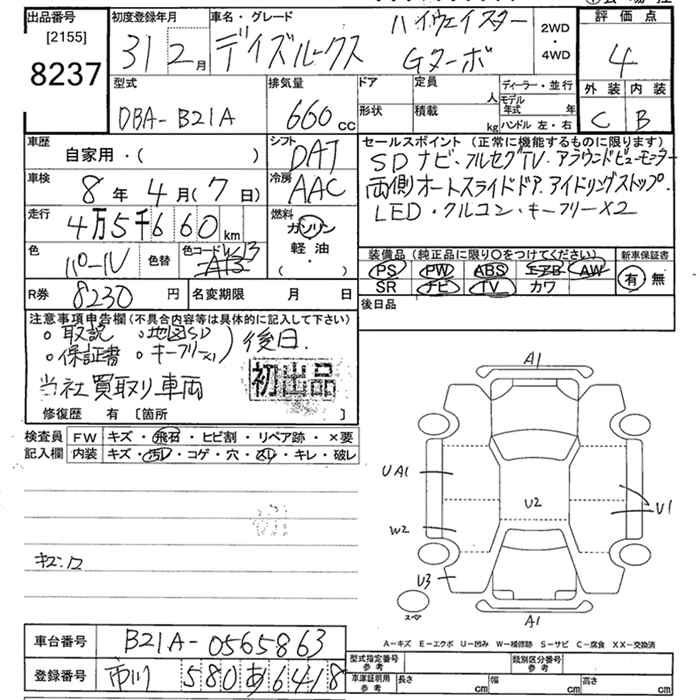 出品番号 [2155] 8237
初度登録年月 31 2月
車名・グレード デイズルークス ハイウェイスター Gターボ
2WD
4WD
評価点 4
外装 C 内装 B
型式 DBA-B21A
排気量 660 cc
ドア 形状
定員 人
積載 kg
ディーラー・並行
モデル年式 年
ハンドル 左・右
車歴 自家用・( )
シフト DAT
車検 8年 4月 (7日)
冷房 AAC
走行 4万5千660 km
燃料 ガソリン 軽油 ( ・ )
色 パール 色替 色コード
R券 8230円 名変期限 月 日
セールスポイント (正常に機能するものに限ります)
SDナビ・フルセグTV・アラウンドビューモニター
両側オートスライドドア.アイドリングストップ.
LED・クルコン・キーフリー×2
装備品 (純正品に限り○をつけてください) 新車保証書
PS PW ABS エアB AW 有・無
SR ナビ TV カワ
後日品
注意事項申告欄(不具合内容等は具体的に記入して下さい)
○取説 ○地図SD
○保証書 ○キーフリー×1 ) 後日
当社買取り車両
初出品
修復歴 有 [箇所 ]
検査員 FW キズ・飛石・ヒビ割・リペア跡・×要
記入欄 内装 キズ・汚レ・コゲ・穴・スレ・キレ・破レ
A1
UA1
U2
U1
W2
U3
A1
A-キズ E-エクボ U-凹み W-補修跡 S-サビ C-腐食 XX-交換済
車台番号 B21A-0565863
登録番号 市川 580 あ 6418
型式指定番号 参考 類別区分番号 参考
車庫証明用 参考 長さ cm 幅 cm 高さ cm